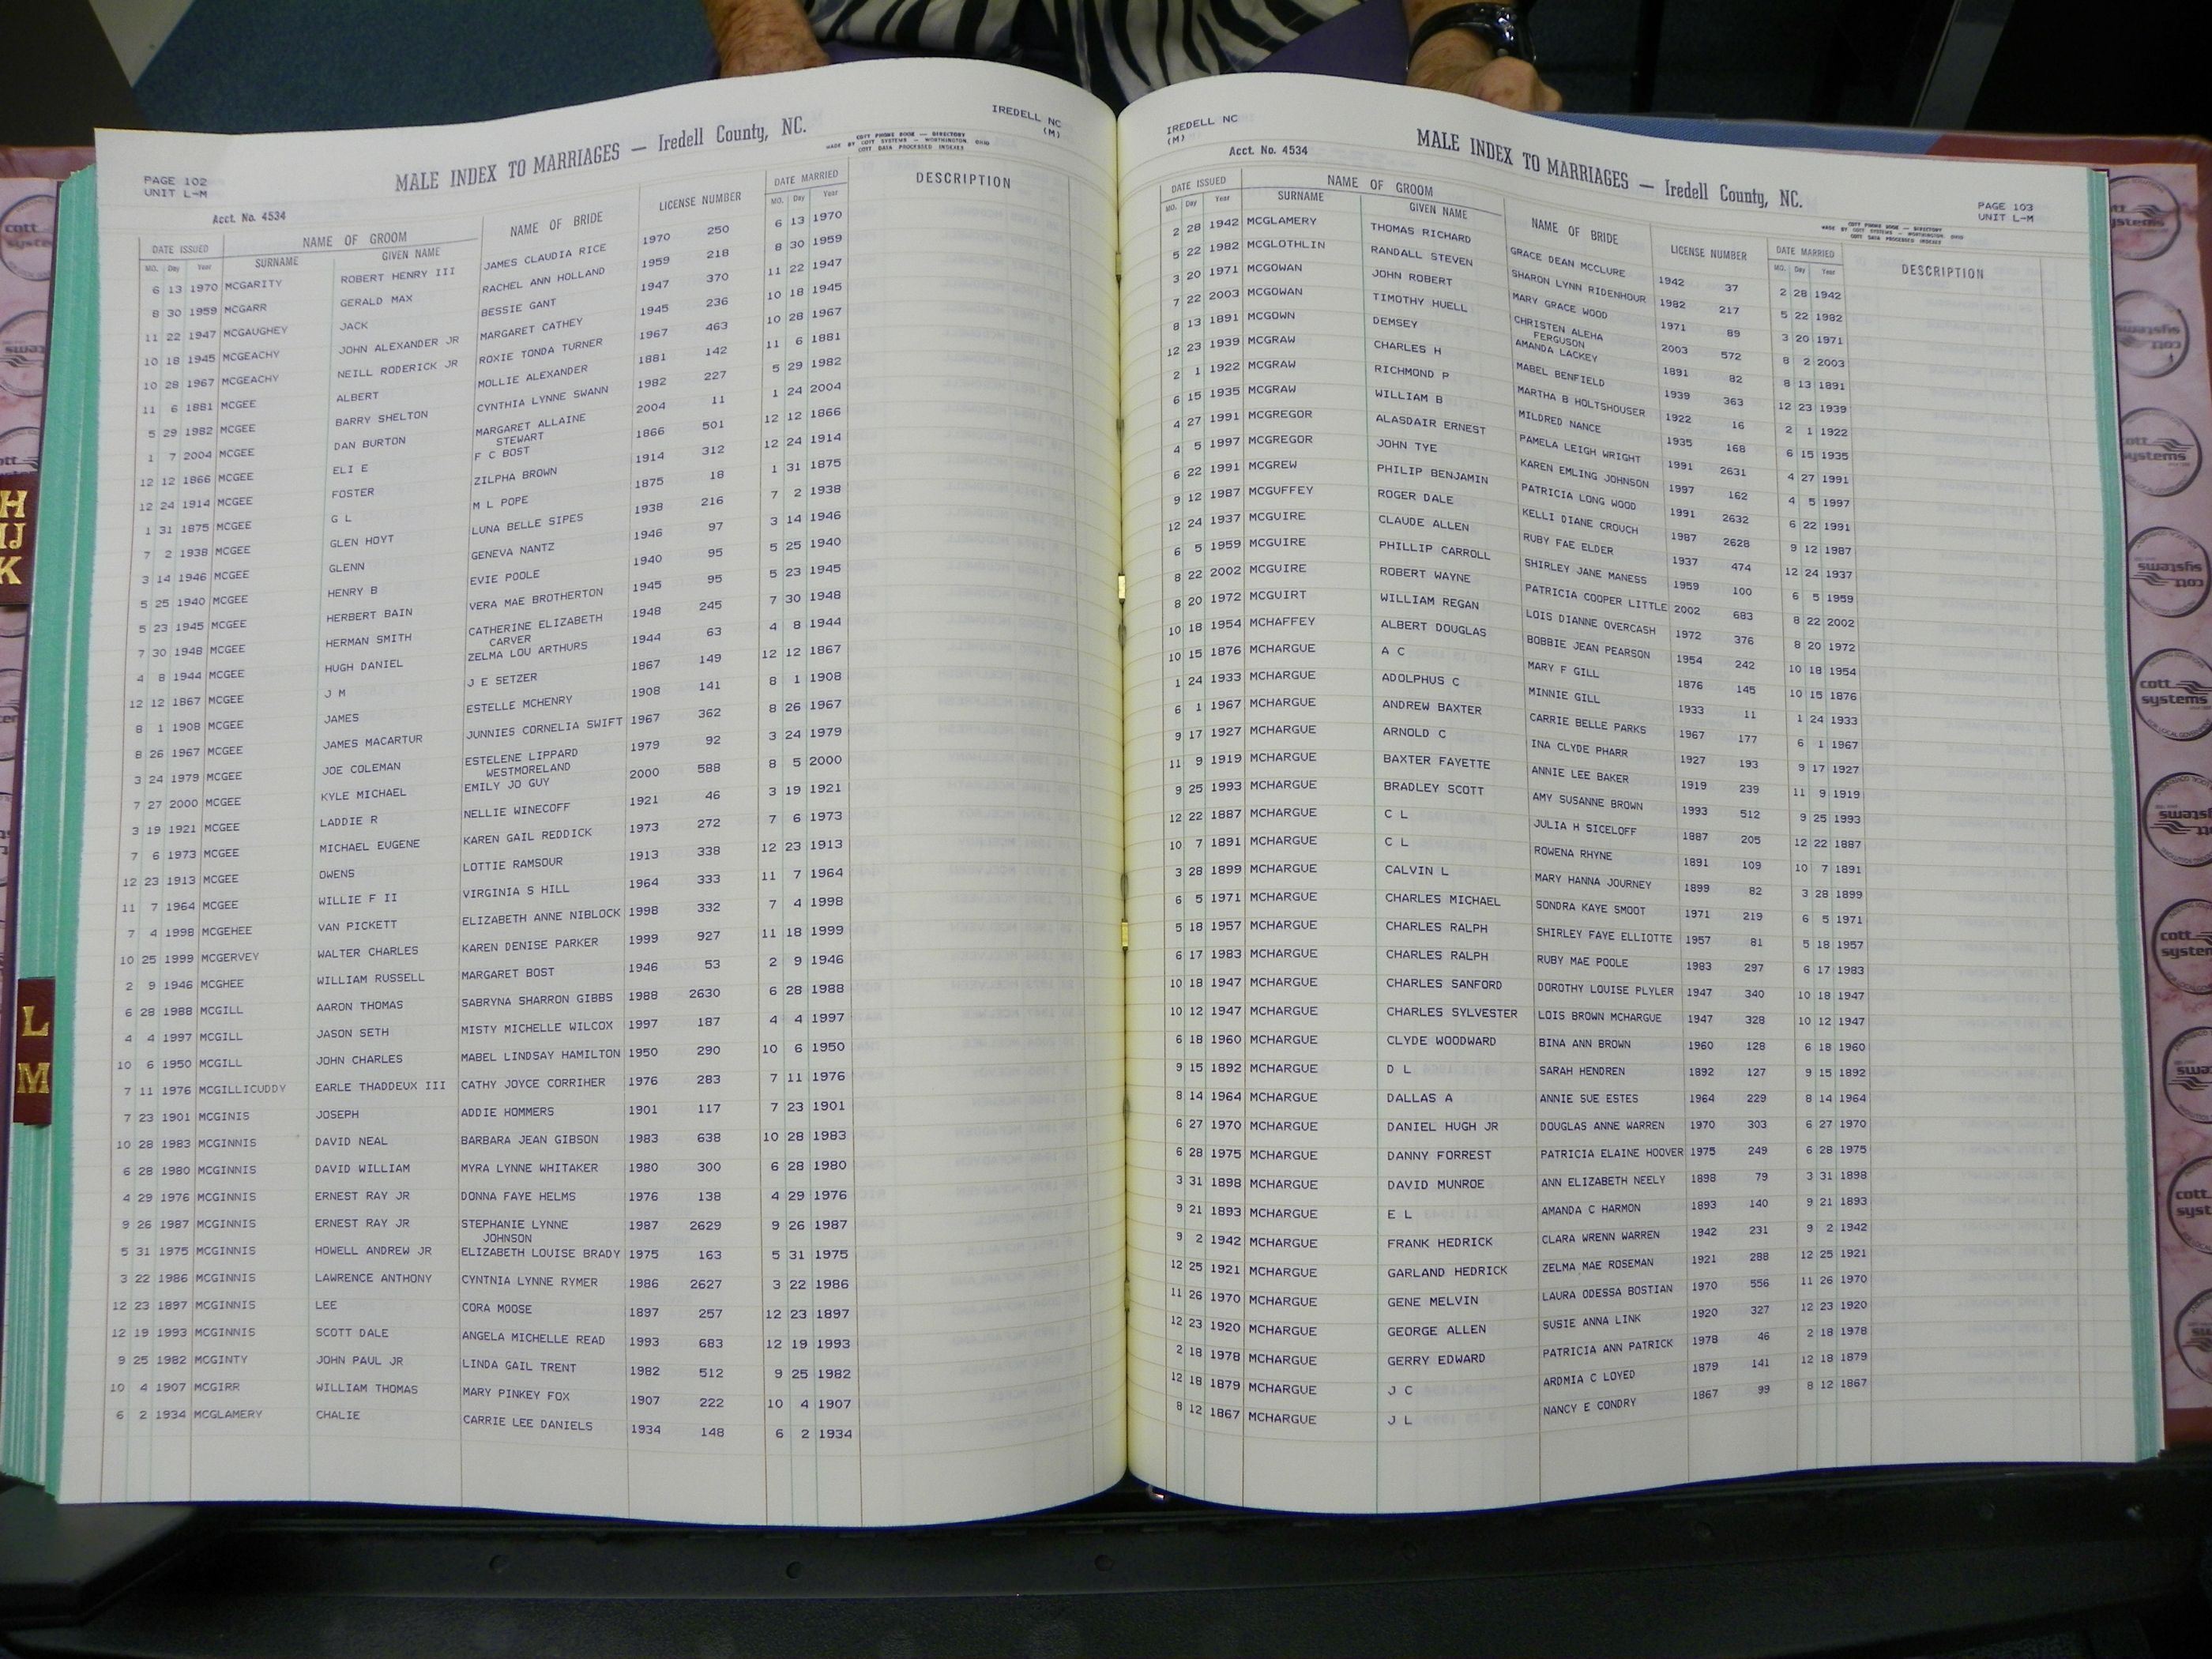 IREDELL NC
(M)
MALE INDEX TO MARRIAGES — Iredell County, NC.
COTT PHONE BOOK — DIRECTORY
MADE BY COTT SYSTEMS — WORTHINGTON, OHIO
COTT DATA PROCESSED INDEXES
PAGE 102
UNIT L-M
Acct. No. 4534
DATE ISSUED NAME OF GROOM NAME OF BRIDE LICENSE NUMBER DATE MARRIED DESCRIPTION
MO. Day Year SURNAME GIVEN NAME MO. Day Year
6 13 1970 MCGARITY ROBERT HENRY III JAMES CLAUDIA RICE 1970 250 6 13 1970
8 30 1959 MCGARR GERALD MAX RACHEL ANN HOLLAND 1959 218 8 30 1959
11 22 1947 MCGAUGHEY JACK BESSIE GANT 1947 370 11 22 1947
10 18 1945 MCGEACHY JOHN ALEXANDER JR MARGARET CATHEY 1945 236 10 18 1945
10 28 1967 MCGEACHY NEILL RODERICK JR ROXIE TONDA TURNER 1967 463 10 28 1967
11 6 1881 MCGEE ALBERT MOLLIE ALEXANDER 1881 142 11 6 1881
5 29 1982 MCGEE BARRY SHELTON CYNTHIA LYNNE SWANN 1982 227 5 29 1982
1 7 2004 MCGEE DAN BURTON MARGARET ALLAINE 2004 11 1 24 2004
STEWART
12 12 1866 MCGEE ELI E F C BOST 1866 501 12 12 1866
12 24 1914 MCGEE FOSTER ZILPHA BROWN 1914 312 12 24 1914
1 31 1875 MCGEE G L M L POPE 1875 18 1 31 1875
7 2 1938 MCGEE GLEN HOYT LUNA BELLE SIPES 1938 216 7 2 1938
3 14 1946 MCGEE GLENN GENEVA NANTZ 1946 97 3 14 1946
5 25 1940 MCGEE HENRY B EVIE POOLE 1940 95 5 25 1940
5 23 1945 MCGEE HERBERT BAIN VERA MAE BROTHERTON 1945 95 5 23 1945
7 30 1948 MCGEE HERMAN SMITH CATHERINE ELIZABETH 1948 245 7 30 1948
CARVER
4 8 1944 MCGEE HUGH DANIEL ZELMA LOU ARTHURS 1944 63 4 8 1944
12 12 1867 MCGEE J M J E SETZER 1867 149 12 12 1867
8 1 1908 MCGEE JAMES ESTELLE MCHENRY 1908 141 8 1 1908
8 26 1967 MCGEE JAMES MACARTUR JUNNIES CORNELIA SWIFT 1967 362 8 26 1967
3 24 1979 MCGEE JOE COLEMAN ESTELENE LIPPARD 1979 92 3 24 1979
WESTMORELAND
7 27 2000 MCGEE KYLE MICHAEL EMILY JO GUY 2000 588 8 5 2000
3 19 1921 MCGEE LADDIE R NELLIE WINECOFF 1921 46 3 19 1921
7 6 1973 MCGEE MICHAEL EUGENE KAREN GAIL REDDICK 1973 272 7 6 1973
12 23 1913 MCGEE OWENS LOTTIE RAMSOUR 1913 338 12 23 1913
11 7 1964 MCGEE WILLIE F II VIRGINIA S HILL 1964 333 11 7 1964
7 4 1998 MCGEHEE VAN PICKETT ELIZABETH ANNE NIBLOCK 1998 332 7 4 1998
10 25 1999 MCGERVEY WALTER CHARLES KAREN DENISE PARKER 1999 927 11 18 1999
2 9 1946 MCGHEE WILLIAM RUSSELL MARGARET BOST 1946 53 2 9 1946
6 28 1988 MCGILL AARON THOMAS SABRYNA SHARRON GIBBS 1988 2630 6 28 1988
4 4 1997 MCGILL JASON SETH MISTY MICHELLE WILCOX 1997 187 4 4 1997
10 6 1950 MCGILL JOHN CHARLES MABEL LINDSAY HAMILTON 1950 290 10 6 1950
7 11 1976 MCGILLICUDDY EARLE THADDEUX III CATHY JOYCE CORRIHER 1976 283 7 11 1976
7 23 1901 MCGINIS JOSEPH ADDIE HOMMERS 1901 117 7 23 1901
10 28 1983 MCGINNIS DAVID NEAL BARBARA JEAN GIBSON 1983 638 10 28 1983
6 28 1980 MCGINNIS DAVID WILLIAM MYRA LYNNE WHITAKER 1980 300 6 28 1980
4 29 1976 MCGINNIS ERNEST RAY JR DONNA FAYE HELMS 1976 138 4 29 1976
9 26 1987 MCGINNIS ERNEST RAY JR STEPHANIE LYNNE 1987 2629 9 26 1987
JOHNSON
5 31 1975 MCGINNIS HOWELL ANDREW JR ELIZABETH LOUISE BRADY 1975 163 5 31 1975
3 22 1986 MCGINNIS LAWRENCE ANTHONY CYNTNIA LYNNE RYMER 1986 2627 3 22 1986
12 23 1897 MCGINNIS LEE CORA MOOSE 1897 257 12 23 1897
12 19 1993 MCGINNIS SCOTT DALE ANGELA MICHELLE READ 1993 683 12 19 1993
9 25 1982 MCGINTY JOHN PAUL JR LINDA GAIL TRENT 1982 512 9 25 1982
10 4 1907 MCGIRR WILLIAM THOMAS MARY PINKEY FOX 1907 222 10 4 1907
6 2 1934 MCGLAMERY CHALIE CARRIE LEE DANIELS 1934 148 6 2 1934
IREDELL NC
(M)
Acct. No. 4534
MALE INDEX TO MARRIAGES — Iredell County, NC.
COTT PHONE BOOK — DIRECTORY
MADE BY COTT SYSTEMS — WORTHINGTON, OHIO
COTT DATA PROCESSED INDEXES
PAGE 103
UNIT L-M
DATE ISSUED NAME OF GROOM NAME OF BRIDE LICENSE NUMBER DATE MARRIED DESCRIPTION
MO. Day Year SURNAME GIVEN NAME MO. Day Year
2 28 1942 MCGLAMERY THOMAS RICHARD GRACE DEAN MCCLURE 1942 37 2 28 1942
5 22 1982 MCGLOTHLIN RANDALL STEVEN SHARON LYNN RIDENHOUR 1982 217 5 22 1982
3 20 1971 MCGOWAN JOHN ROBERT MARY GRACE WOOD 1971 89 3 20 1971
7 22 2003 MCGOWAN TIMOTHY HUELL CHRISTEN ALEHA 2003 572 8 2 2003
FERGUSON
8 13 1891 MCGOWN DEMSEY AMANDA LACKEY 1891 82 8 13 1891
12 23 1939 MCGRAW CHARLES H MABEL BENFIELD 1939 363 12 23 1939
2 1 1922 MCGRAW RICHMOND P MARTHA B HOLTSHOUSER 1922 16 2 1 1922
6 15 1935 MCGRAW WILLIAM B MILDRED NANCE 1935 168 6 15 1935
4 27 1991 MCGREGOR ALASDAIR ERNEST PAMELA LEIGH WRIGHT 1991 2631 4 27 1991
4 5 1997 MCGREGOR JOHN TYE KAREN EMLING JOHNSON 1997 162 4 5 1997
6 22 1991 MCGREW PHILIP BENJAMIN PATRICIA LONG WOOD 1991 2632 6 22 1991
9 12 1987 MCGUFFEY ROGER DALE KELLI DIANE CROUCH 1987 2628 9 12 1987
12 24 1937 MCGUIRE CLAUDE ALLEN RUBY FAE ELDER 1937 474 12 24 1937
6 5 1959 MCGUIRE PHILLIP CARROLL SHIRLEY JANE MANESS 1959 100 6 5 1959
8 22 2002 MCGUIRE ROBERT WAYNE PATRICIA COOPER LITTLE 2002 683 8 22 2002
8 20 1972 MCGUIRT WILLIAM REGAN LOIS DIANNE OVERCASH 1972 376 8 20 1972
10 18 1954 MCHAFFEY ALBERT DOUGLAS BOBBIE JEAN PEARSON 1954 242 10 18 1954
10 15 1876 MCHARGUE A C MARY F GILL 1876 145 10 15 1876
1 24 1933 MCHARGUE ADOLPHUS C MINNIE GILL 1933 11 1 24 1933
6 1 1967 MCHARGUE ANDREW BAXTER CARRIE BELLE PARKS 1967 177 6 1 1967
9 17 1927 MCHARGUE ARNOLD C INA CLYDE PHARR 1927 193 9 17 1927
11 9 1919 MCHARGUE BAXTER FAYETTE ANNIE LEE BAKER 1919 239 11 9 1919
9 25 1993 MCHARGUE BRADLEY SCOTT AMY SUSANNE BROWN 1993 512 9 25 1993
12 22 1887 MCHARGUE C L JULIA H SICELOFF 1887 205 12 22 1887
10 7 1891 MCHARGUE C L ROWENA RHYNE 1891 109 10 7 1891
3 28 1899 MCHARGUE CALVIN L MARY HANNA JOURNEY 1899 82 3 28 1899
6 5 1971 MCHARGUE CHARLES MICHAEL SONDRA KAYE SMOOT 1971 219 6 5 1971
5 18 1957 MCHARGUE CHARLES RALPH SHIRLEY FAYE ELLIOTTE 1957 81 5 18 1957
6 17 1983 MCHARGUE CHARLES RALPH RUBY MAE POOLE 1983 297 6 17 1983
10 18 1947 MCHARGUE CHARLES SANFORD DOROTHY LOUISE PLYLER 1947 340 10 18 1947
10 12 1947 MCHARGUE CHARLES SYLVESTER LOIS BROWN MCHARGUE 1947 328 10 12 1947
6 18 1960 MCHARGUE CLYDE WOODWARD BINA ANN BROWN 1960 128 6 18 1960
9 15 1892 MCHARGUE D L SARAH HENDREN 1892 127 9 15 1892
8 14 1964 MCHARGUE DALLAS A ANNIE SUE ESTES 1964 229 8 14 1964
6 27 1970 MCHARGUE DANIEL HUGH JR DOUGLAS ANNE WARREN 1970 303 6 27 1970
6 28 1975 MCHARGUE DANNY FORREST PATRICIA ELAINE HOOVER 1975 249 6 28 1975
3 31 1898 MCHARGUE DAVID MUNROE ANN ELIZABETH NEELY 1898 79 3 31 1898
9 21 1893 MCHARGUE E L AMANDA C HARMON 1893 140 9 21 1893
9 2 1942 MCHARGUE FRANK HEDRICK CLARA WRENN WARREN 1942 231 9 2 1942
12 25 1921 MCHARGUE GARLAND HEDRICK ZELMA MAE ROSEMAN 1921 288 12 25 1921
11 26 1970 MCHARGUE GENE MELVIN LAURA ODESSA BOSTIAN 1970 556 11 26 1970
12 23 1920 MCHARGUE GEORGE ALLEN SUSIE ANNA LINK 1920 327 12 23 1920
2 18 1978 MCHARGUE GERRY EDWARD PATRICIA ANN PATRICK 1978 46 2 18 1978
12 18 1879 MCHARGUE J C ARDMIA C LOYED 1879 141 12 18 1879
8 12 1867 MCHARGUE J L NANCY E CONDRY 1867 99 8 12 1867
H
IJ
K
L
M
cott
systems